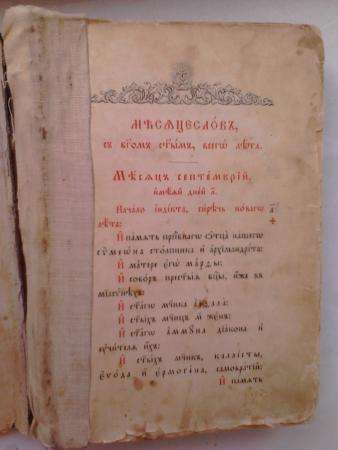 Мѣсѧцесло́въ,
съ бг҃омъ ст҃ы́мъ, всегѡ̀ лѣ́та.
Мѣ́сѧцъ септе́мврїй,
и҆мѣ́ѧй дні́й л҃.
Нача́ло і҆ндї́кта, си́рѣчь но́вагѡ а҃
лѣ́та:
И҆ па́мѧть прпⷣбнагѡ ѻ҆тца̀ на́шегѡ
сѷмеѡ́на сто́лпника и҆ а҆рхїмандрі́та:
И҆ ма́тере є҆гѡ̀ ма́рѳы:
И҆ собо́ръ прест҃ы́ѧ бцⷣы, ꙗ҆́же въ
мїасїнѣ́хъ:
И҆ ст҃а́гѡ мч҃ника а҆ї́ѳала:
И҆ ст҃ы́хъ мч҃ницъ м҃ же́нъ:
И҆ ст҃а́гѡ а҆ммꙋ́на дїа́кона и҆
ᲂу҆чи́телѧ и҆́хъ:
И҆ ст҃ы́хъ мч҃никъ, каллі́сты,
є҆ѵо́да и҆ є҆рмоге́на, самобра́тїй:
И҆ па́мѧть